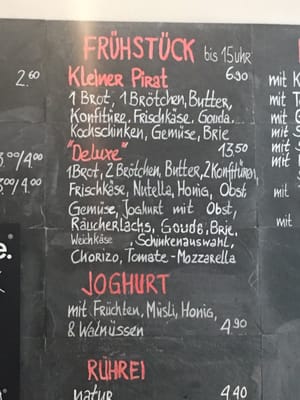 FRÜHSTÜCK bis 15 uhr
2.60
Kleiner Pirat 6.90
1 Brot, 1 Brötchen, Butter,
Konfitüre, Frischkäse, Gouda,
Kochschinken, Gemüse, Brie
"Deluxe" 13.50
3.00/4.00
1 Brot, 2 Brötchen, Butter, 2 Konfitüren,
3.00/4.00
Frischkäse, Nutella, Honig, Obst,
Gemüse, Joghurt mit Obst,
Räucherlachs, Gouda, Brie,
Weichkäse, Schinkenauswahl,
Chorizo, Tomate-Mozzarella
JOGHURT
mit Früchten, Müsli, Honig,
& Walnüssen 4.90
RÜHREI
natur 4.40
mit
mit
mit
mit
mit